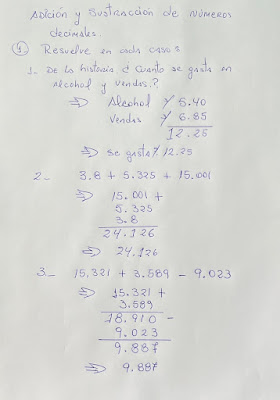 Adición y Sustracción de números
decimales.
① Resuelve en cada caso:
1. De la historia ¿ Cuánto se gasta en
alcohol y vendas?
⇒ Alcohol 5.40
Vendas 6.85
12.25
⇒ Se gasta 12.25
2- 3.8 + 5.325 + 15.001
⇒ 15.001 +
5.325
3.8
24.126
⇒ 24.126
3- 15,321 + 3.589 - 9.023
⇒ 15.321 +
3.589
18.910 -
9.023
9.887
⇒ 9.887